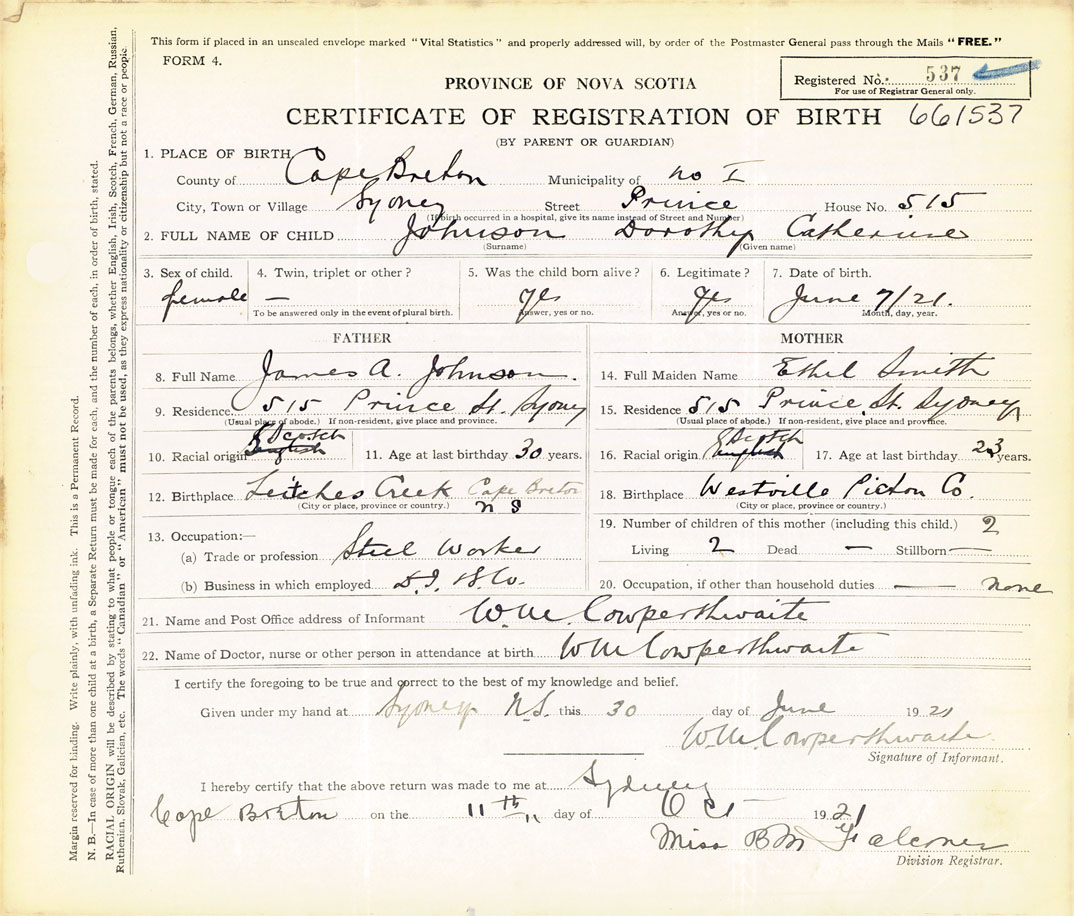 This form if placed in an unsealed envelope marked "Vital Statistics" and properly addressed will, by order of the Postmaster General pass through the Mails "FREE."
FORM 4.
Registered No. 537
For use of Registrar General only.
PROVINCE OF NOVA SCOTIA
CERTIFICATE OF REGISTRATION OF BIRTH 661537
(BY PARENT OR GUARDIAN)
1. PLACE OF BIRTH
County of Cape Breton Municipality of No I
City, Town or Village Sydney Street Prince House No. 515
(If birth occurred in a hospital, give its name instead of Street and Number)
2. FULL NAME OF CHILD Johnson Dorothy Catherine
(Surname) (Given name)
3. Sex of child. 4. Twin, triplet or other? 5. Was the child born alive? 6. Legitimate? 7. Date of birth.
female — yes yes June 7/21.
To be answered only in the event of plural birth. Answer, yes or no. Answer, yes or no. Month, day, year.
FATHER
8. Full Name James A. Johnson.
9. Residence 515 Prince St. Sydney
(Usual place of abode.) If non-resident, give place and province.
10. Racial origin English Scotch 11. Age at last birthday 30 years.
12. Birthplace Leitches Creek Cape Breton
(City or place, province or country.) N S
13. Occupation:—
(a) Trade or profession Steel Worker
(b) Business in which employed D.I.S.Co.
MOTHER
14. Full Maiden Name Ethel Smith
15. Residence 515 Prince St. Sydney
(Usual place of abode.) If non-resident, give place and province.
16. Racial origin English Scotch 17. Age at last birthday 23 years.
18. Birthplace Westville Pictou Co.
(City or place, province or country.)
19. Number of children of this mother (including this child.) 2
Living 2 Dead — Stillborn —
20. Occupation, if other than household duties — none
21. Name and Post Office address of Informant W.M. Cowperthwaite
22. Name of Doctor, nurse or other person in attendance at birth WM Cowperthwaite
I certify the foregoing to be true and correct to the best of my knowledge and belief.
Given under my hand at Sydney N.S. this 30 day of June 1921
W.M. Cowperthwaite
Signature of Informant.
I hereby certify that the above return was made to me at Sydney
Cape Breton on the 11th day of Oct 1921
Miss BM Falconer
Division Registrar.
Margin reserved for binding. Write plainly, with unfading ink. This is a Permanent Record.
N. B.—In case of more than one child at a birth, a Separate Return must be made for each, and the number of each, in order of birth, stated.
RACIAL ORIGIN will be described by stating to what people or tongue each of the parents belongs, whether English, Irish, Scotch, French, German, Russian,
Ruthenian, Slovak, Galician, etc. The words "Canadian" or "American" must not be used, as they express nationality or citizenship but not a race or people.